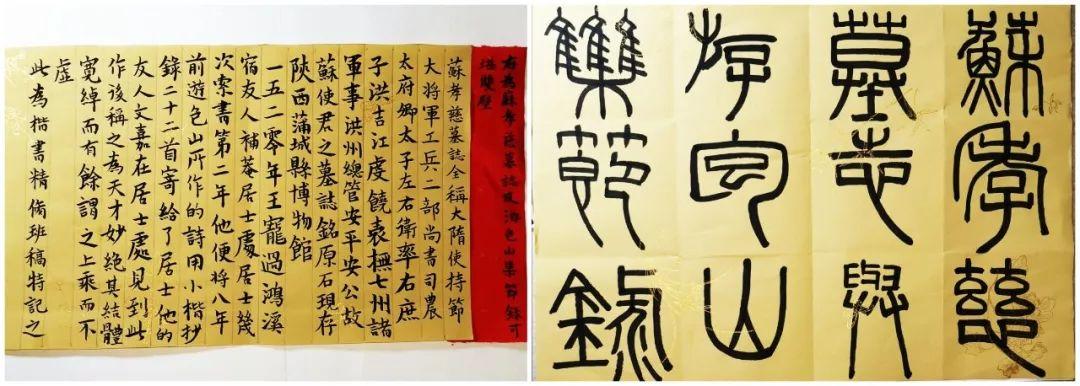 右為蘇孝慈墓誌及游包山集節錄可
堪雙璧
蘇孝慈墓誌全稱大隋使持節
大将軍工兵二部尚書司農
太府卿太子左右衛率右庶
子洪吉江虔饒袁撫七州諸
軍事洪州總管安平安公故
蘇使君之墓誌銘原石現存
陝西蒲城縣博物館
一五二零年王寵過鴻溪
宿友人補菴居士處居士幾
次索書第二年他便將八年
前遊包山所作的詩用小楷抄
錄二十二首寄給了居士他的
友人文嘉在居士處見到此
作後稱之為天才妙絕其結體
寬綽而有餘謂之上乘而不
虛
此為楷書精脩班稿特記之
蘇孝慈
墓志與
游包山
雧節錄